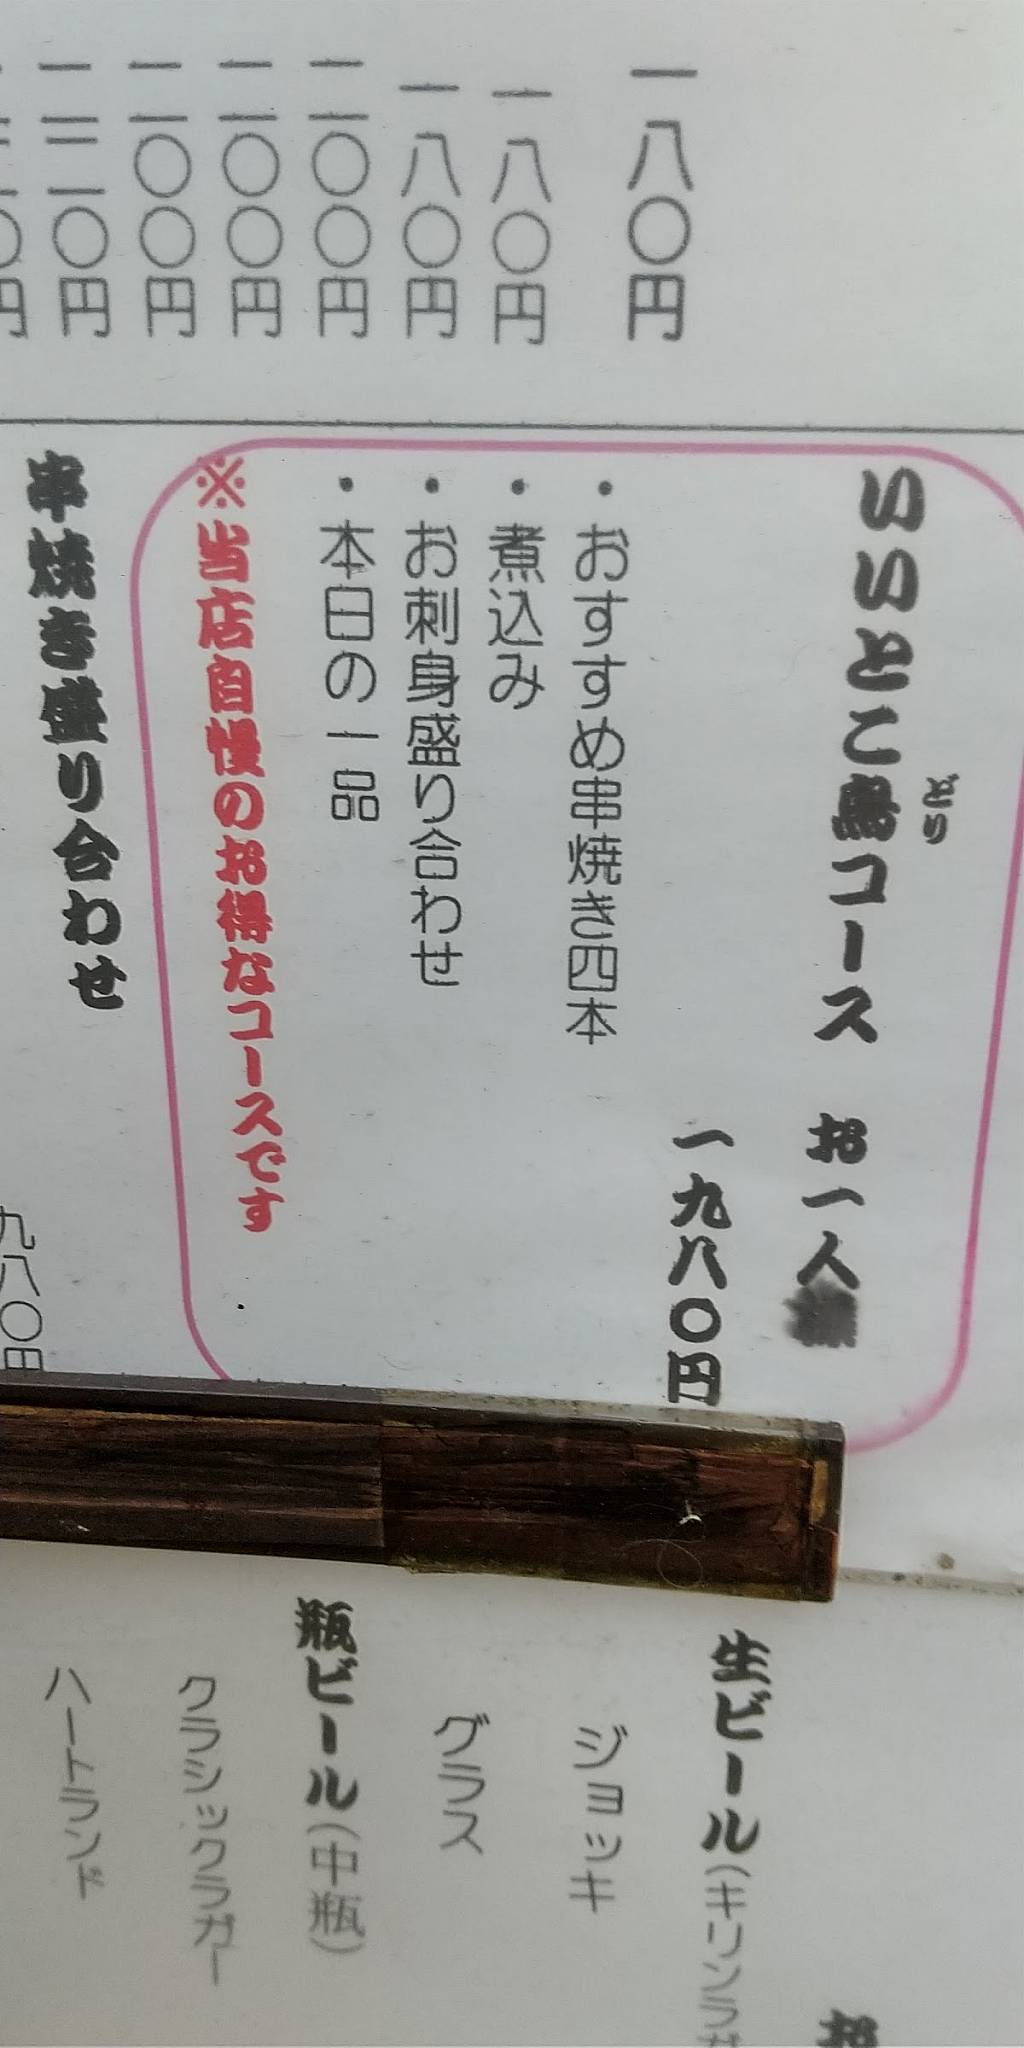 一八〇円
一八〇円
一八〇円
二〇〇円
二〇〇円
二〇〇円
いいとこ鳥コース お一人様
どり
一九八〇円
・おすすめ串焼き四本
・煮込み
・お刺身盛り合わせ
・本日の一品
※当店自慢のお得なコースです
串焼き盛り合わせ
九八〇円
生ビール(キリンラガ
ジョッキ
グラス
瓶ビール(中瓶)
クラシックラガー
ハートランド